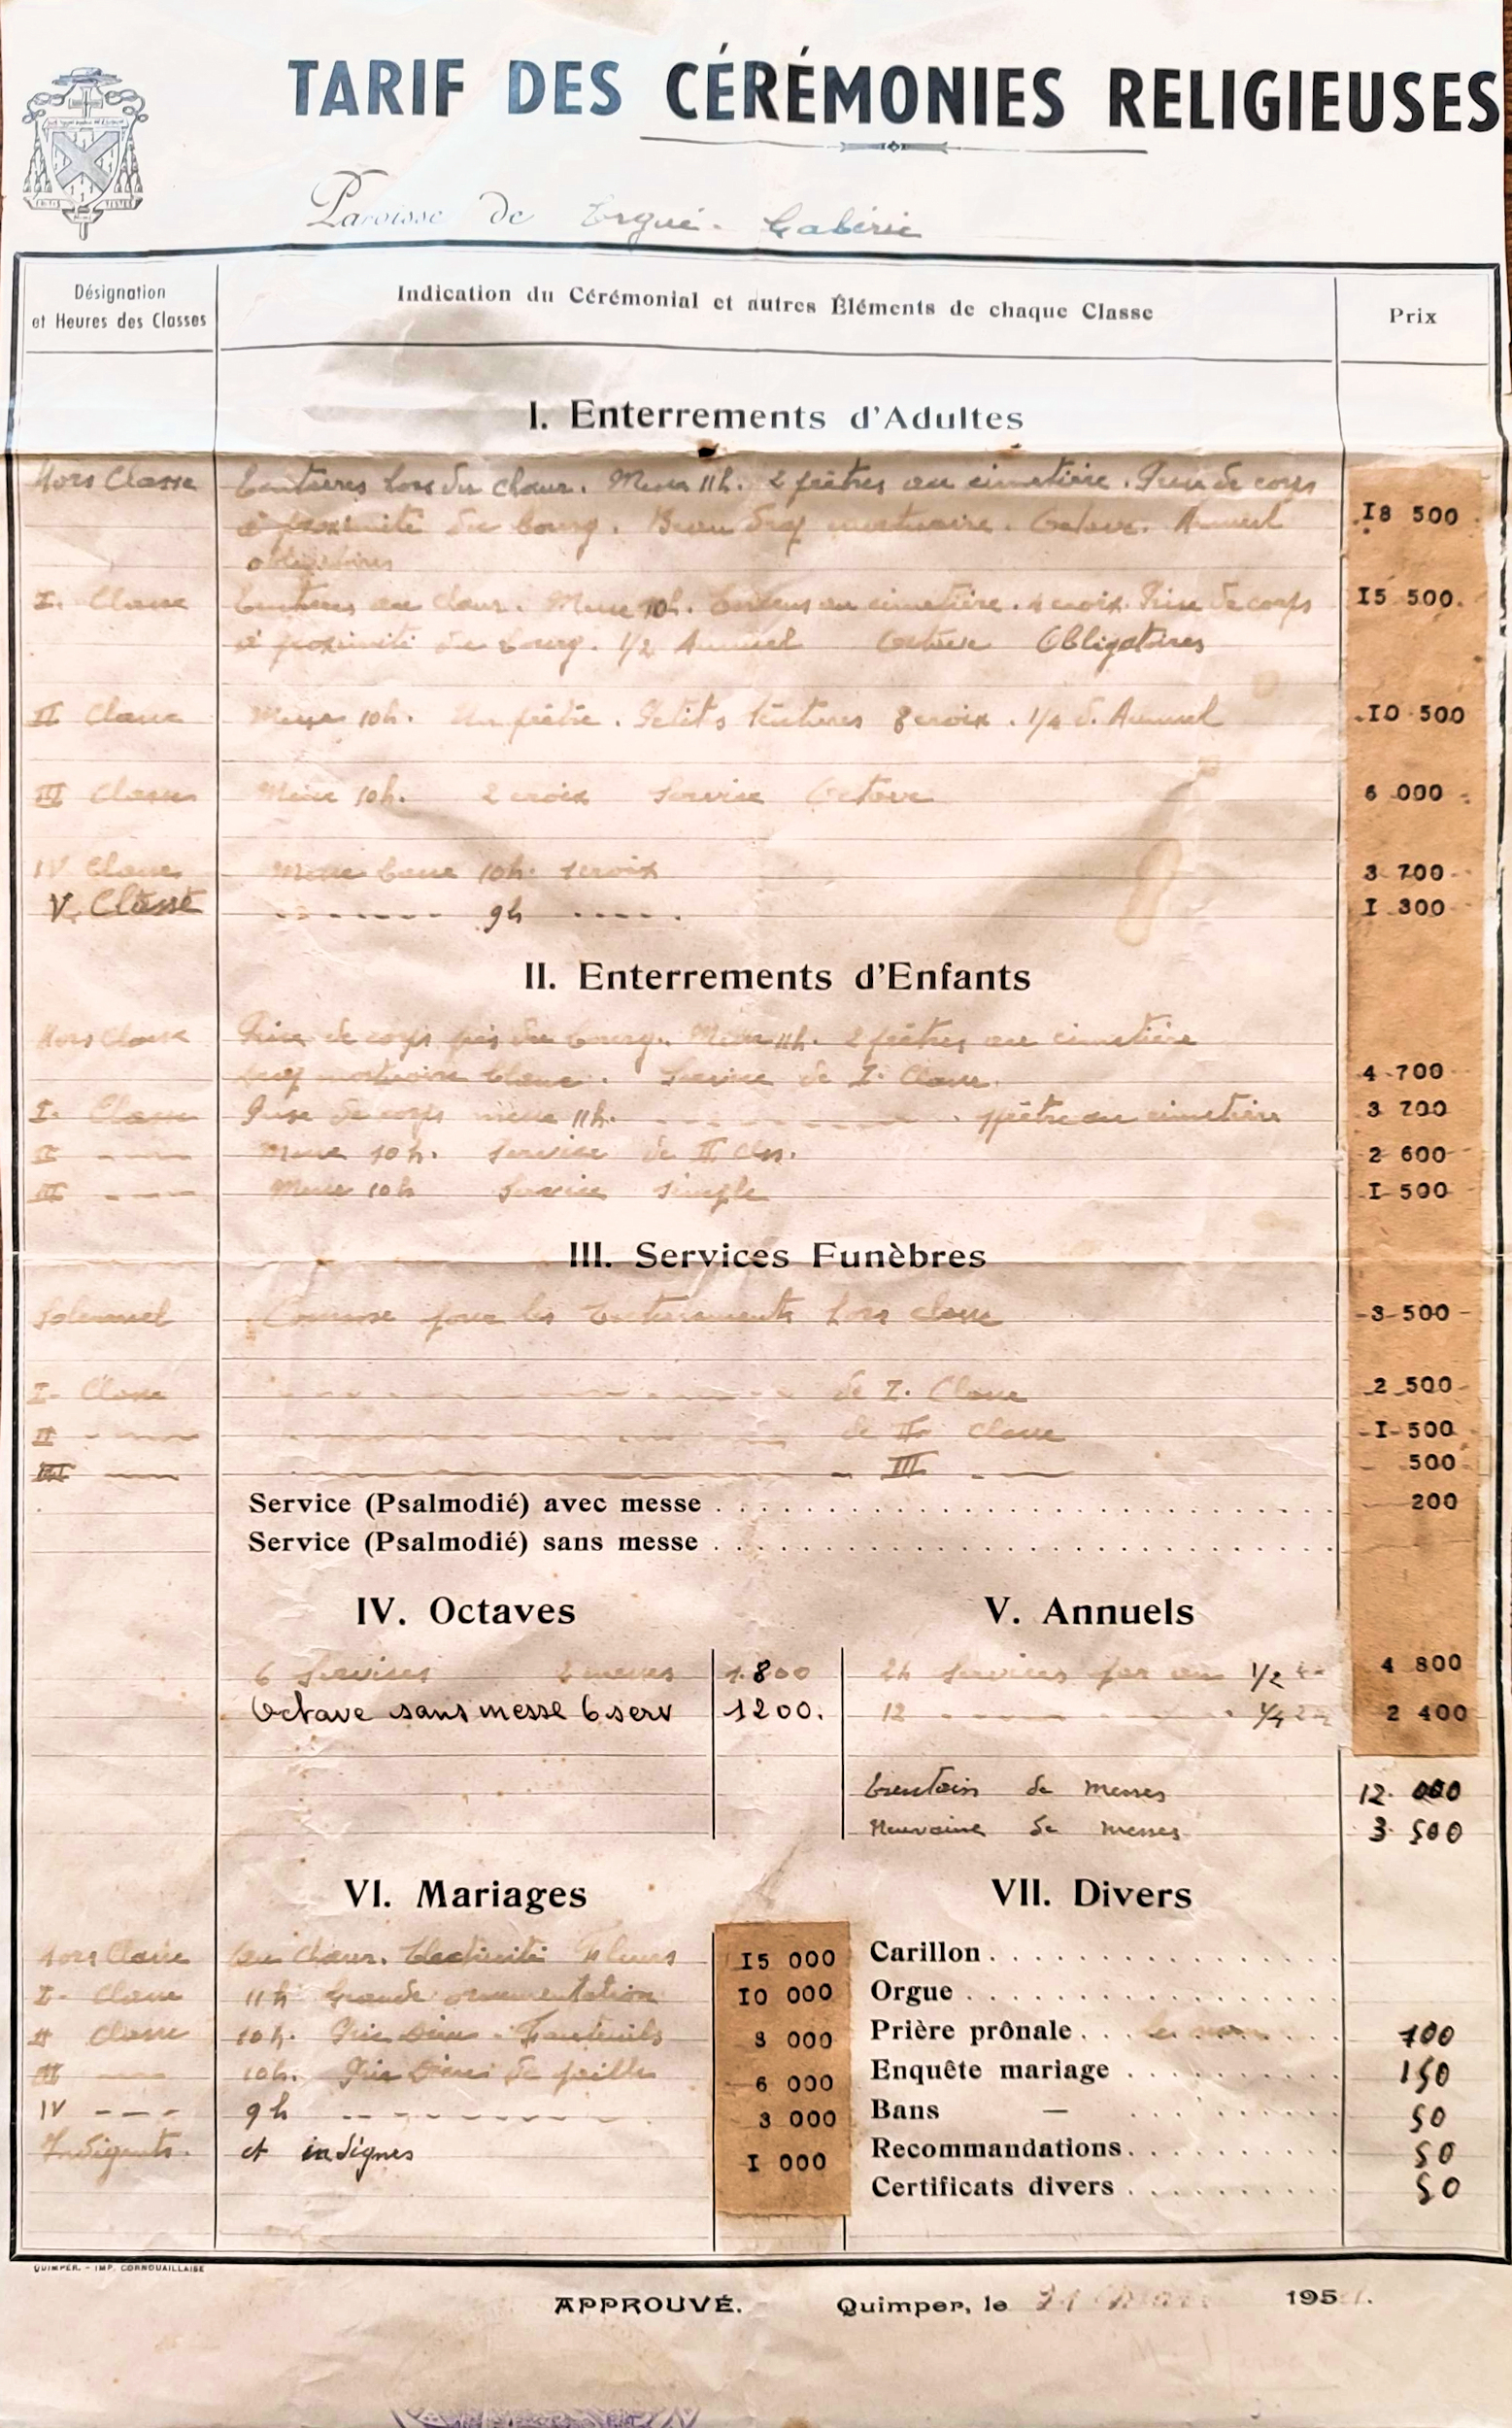 TARIF DES CÉRÉMONIES RELIGIEUSES
Paroisse de Ergué-Gabéric
Désignation et Heures des Classes
Indication du Cérémonial et autres Éléments de chaque Classe
Prix
I. Enterrements d'Adultes
Hors Classe Tentures hors du chœur. Messe 11h. 2 prêtres au cimetière. Prise de corps
à proximité du bourg. Beau drap mortuaire. Octave. Annuel I8 500
obligatoires
I. Classe Tentures au chœur. Messe 10h. Encens au cimetière. 4 croix. Prise de corps I5 500.
à proximité du bourg. 1/2 Annuel Octave Obligatoires
II Classe Messe 10h. Un prêtre. Petites tentures 8 croix. 1/4 d'Annuel I0 500
III Classe Messe 10h. 2 croix Service Octave 6 000
IV Classe Messe basse 10h. 1 croix 3 700
V. Classe - - - - - - 9h - - - - - I 300
II. Enterrements d'Enfants
Hors Classe Prise de corps près du bourg. Messe 11h. 2 prêtres au cimetière
drap mortuaire blanc. Service de I. Classe. 4 700
I. Classe Prise de corps messe 11h. - - - - - - 1 prêtre au cimetière 3 700
II - - - Messe 10h. Service de II Clss. 2 600
III - - - Messe 10h Service simple I 500
III. Services Funèbres
Solennel Comme pour les Enterrements hors classe 3 500
I. Classe - - - - - - - - de I. Classe 2 500
II - - - - - - - - - - - de II classe I 500
III - - - - - - - - - - - III - - 500
Service (Psalmodié) avec messe . . . . 200
Service (Psalmodié) sans messe . . . .
IV. Octaves
6 Services 2 messes 1.800
Octave sans messe 6 serv 1200.
V. Annuels
24 Services par an 1/2 4 800
12 - - - - - - 1/4 2 400
Trentain de messes 12. 000
Neuvaine de messes 3. 500
VI. Mariages
Hors Classe Au Chœur. Electricité Fleurs I5 000
I. Classe 11h Grande ornementation I0 000
II Classe 10h. Prie Dieu. Fauteuils 8 000
III - - 10h. Prie Dieu de paille 6 000
IV - - - 9h - - - - - - - - 3 000
Indigents. et indignes I 000
VII. Divers
Carillon . . . .
Orgue . . . .
Prière prônale . . . . 100
Enquête mariage . . . . 150
Bans — . . . . 50
Recommandations . . . . 50
Certificats divers . . . . 50
QUIMPER. - IMP. CORNOUAILLAISE
APPROUVÉ. Quimper, le 195